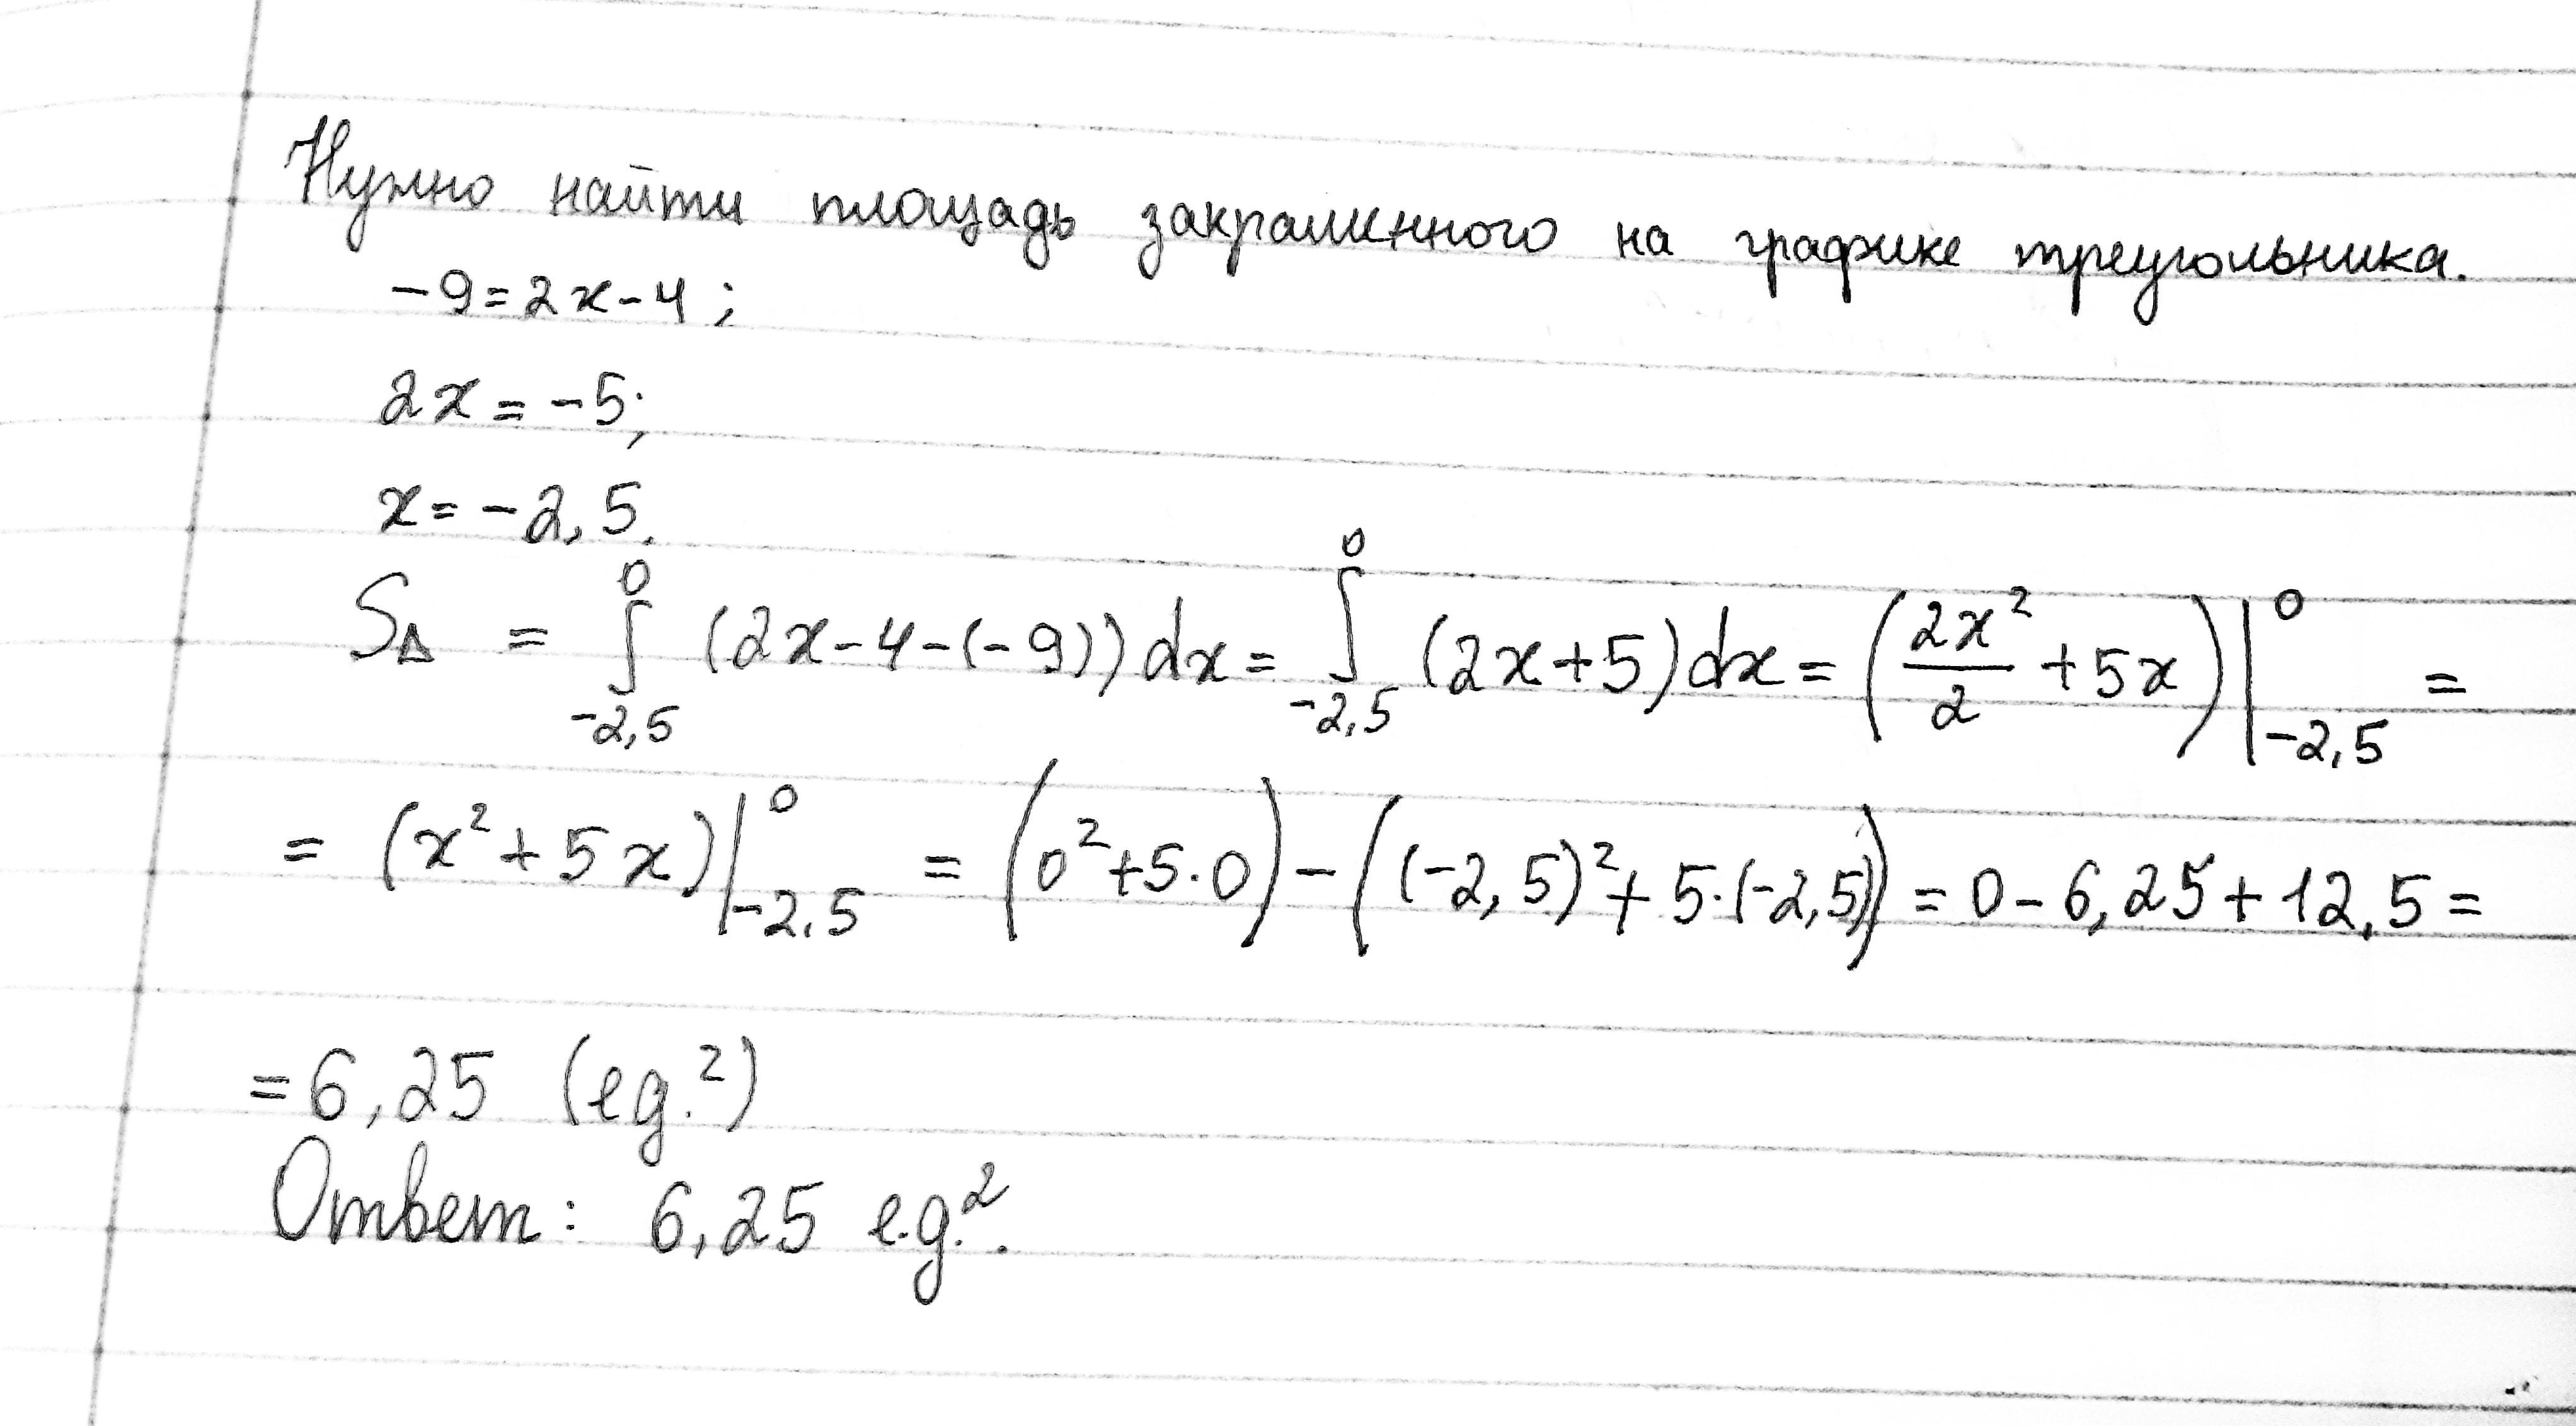 Нужно найти площадь закрашенного на графике треугольника.
-9=2x-4;
2x=-5;
x=-2,5.
S∆ = ∫₋₂,₅⁰ (2x-4-(-9))dx = ∫₋₂,₅⁰ (2x+5)dx = (2x²/2 + 5x)|₋₂,₅⁰ =
= (x²+5x)|₋₂,₅⁰ = (0²+5·0) - ((-2,5)²+5·(-2,5)) = 0-6,25+12,5 =
= 6,25 (ед.²)
Ответ: 6,25 е.д.².